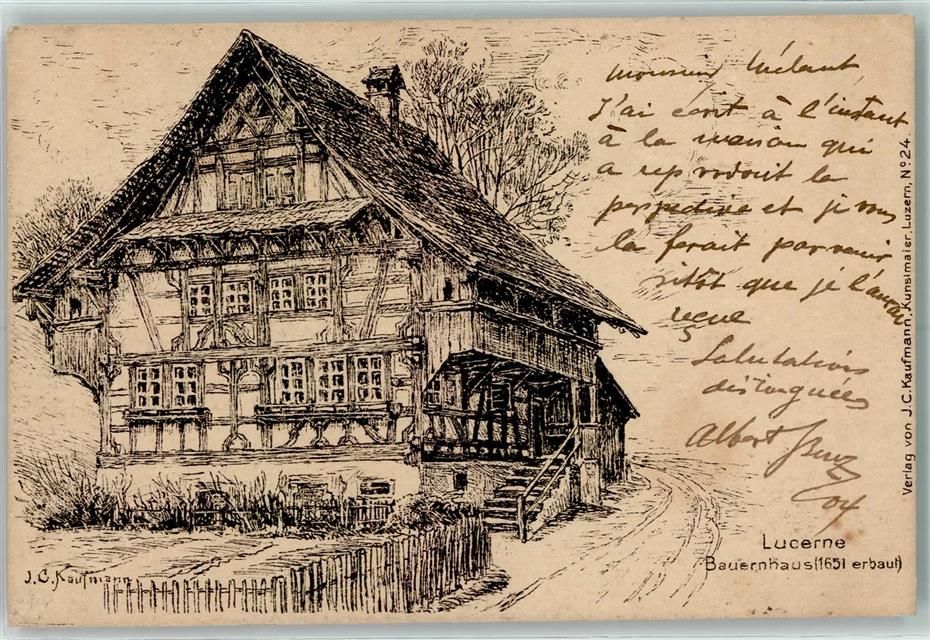 Monsieur
J'ai écrit à l'instant
à la maison qui
a reproduit la
perspective et je vous
la ferait parvenir
sitôt que je l'aurai
reçue
Salutations
distinguées
Albert
04
Lucerne
Bauernhaus (1651 erbaut)
J. C. Kaufmann
Verlag von J. C. Kaufmann, Kunstmaler, Luzern, No 24.